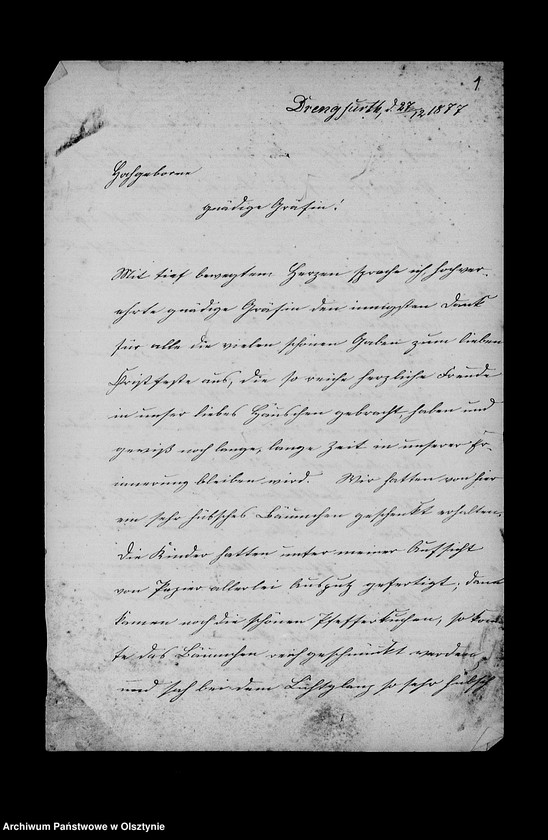 1
Drengfurth, d. 27/12 1877
Hochgeborne
gnädige Gräfin!
Mit tief bewegtem Herzen spreche ich, hochver-
ehrte gnädige Gräfin den innigsten Dank
für alle die vielen schönen Gaben zum lieben
Christfeste aus, die so reiche herzliche Freude
in unser liebes Häuschen gebracht haben und
gewiß noch lange, lange Zeit in unserer Er-
innerung bleiben wird. Wir hatten von hier
ein sehr hübsches Bäumchen geschenkt erhalten.
Die Kinder hatten unter meiner Aufsicht
von Papier allerlei Ausputz gefertigt, dann
kamen noch die schönen Pfefferkuchen, so konn-
te das Bäumchen reich geschmückt werden
und sah bei dem Lichtglanz so sehr hübsch
Archiwum Państwowe w Olsztynie